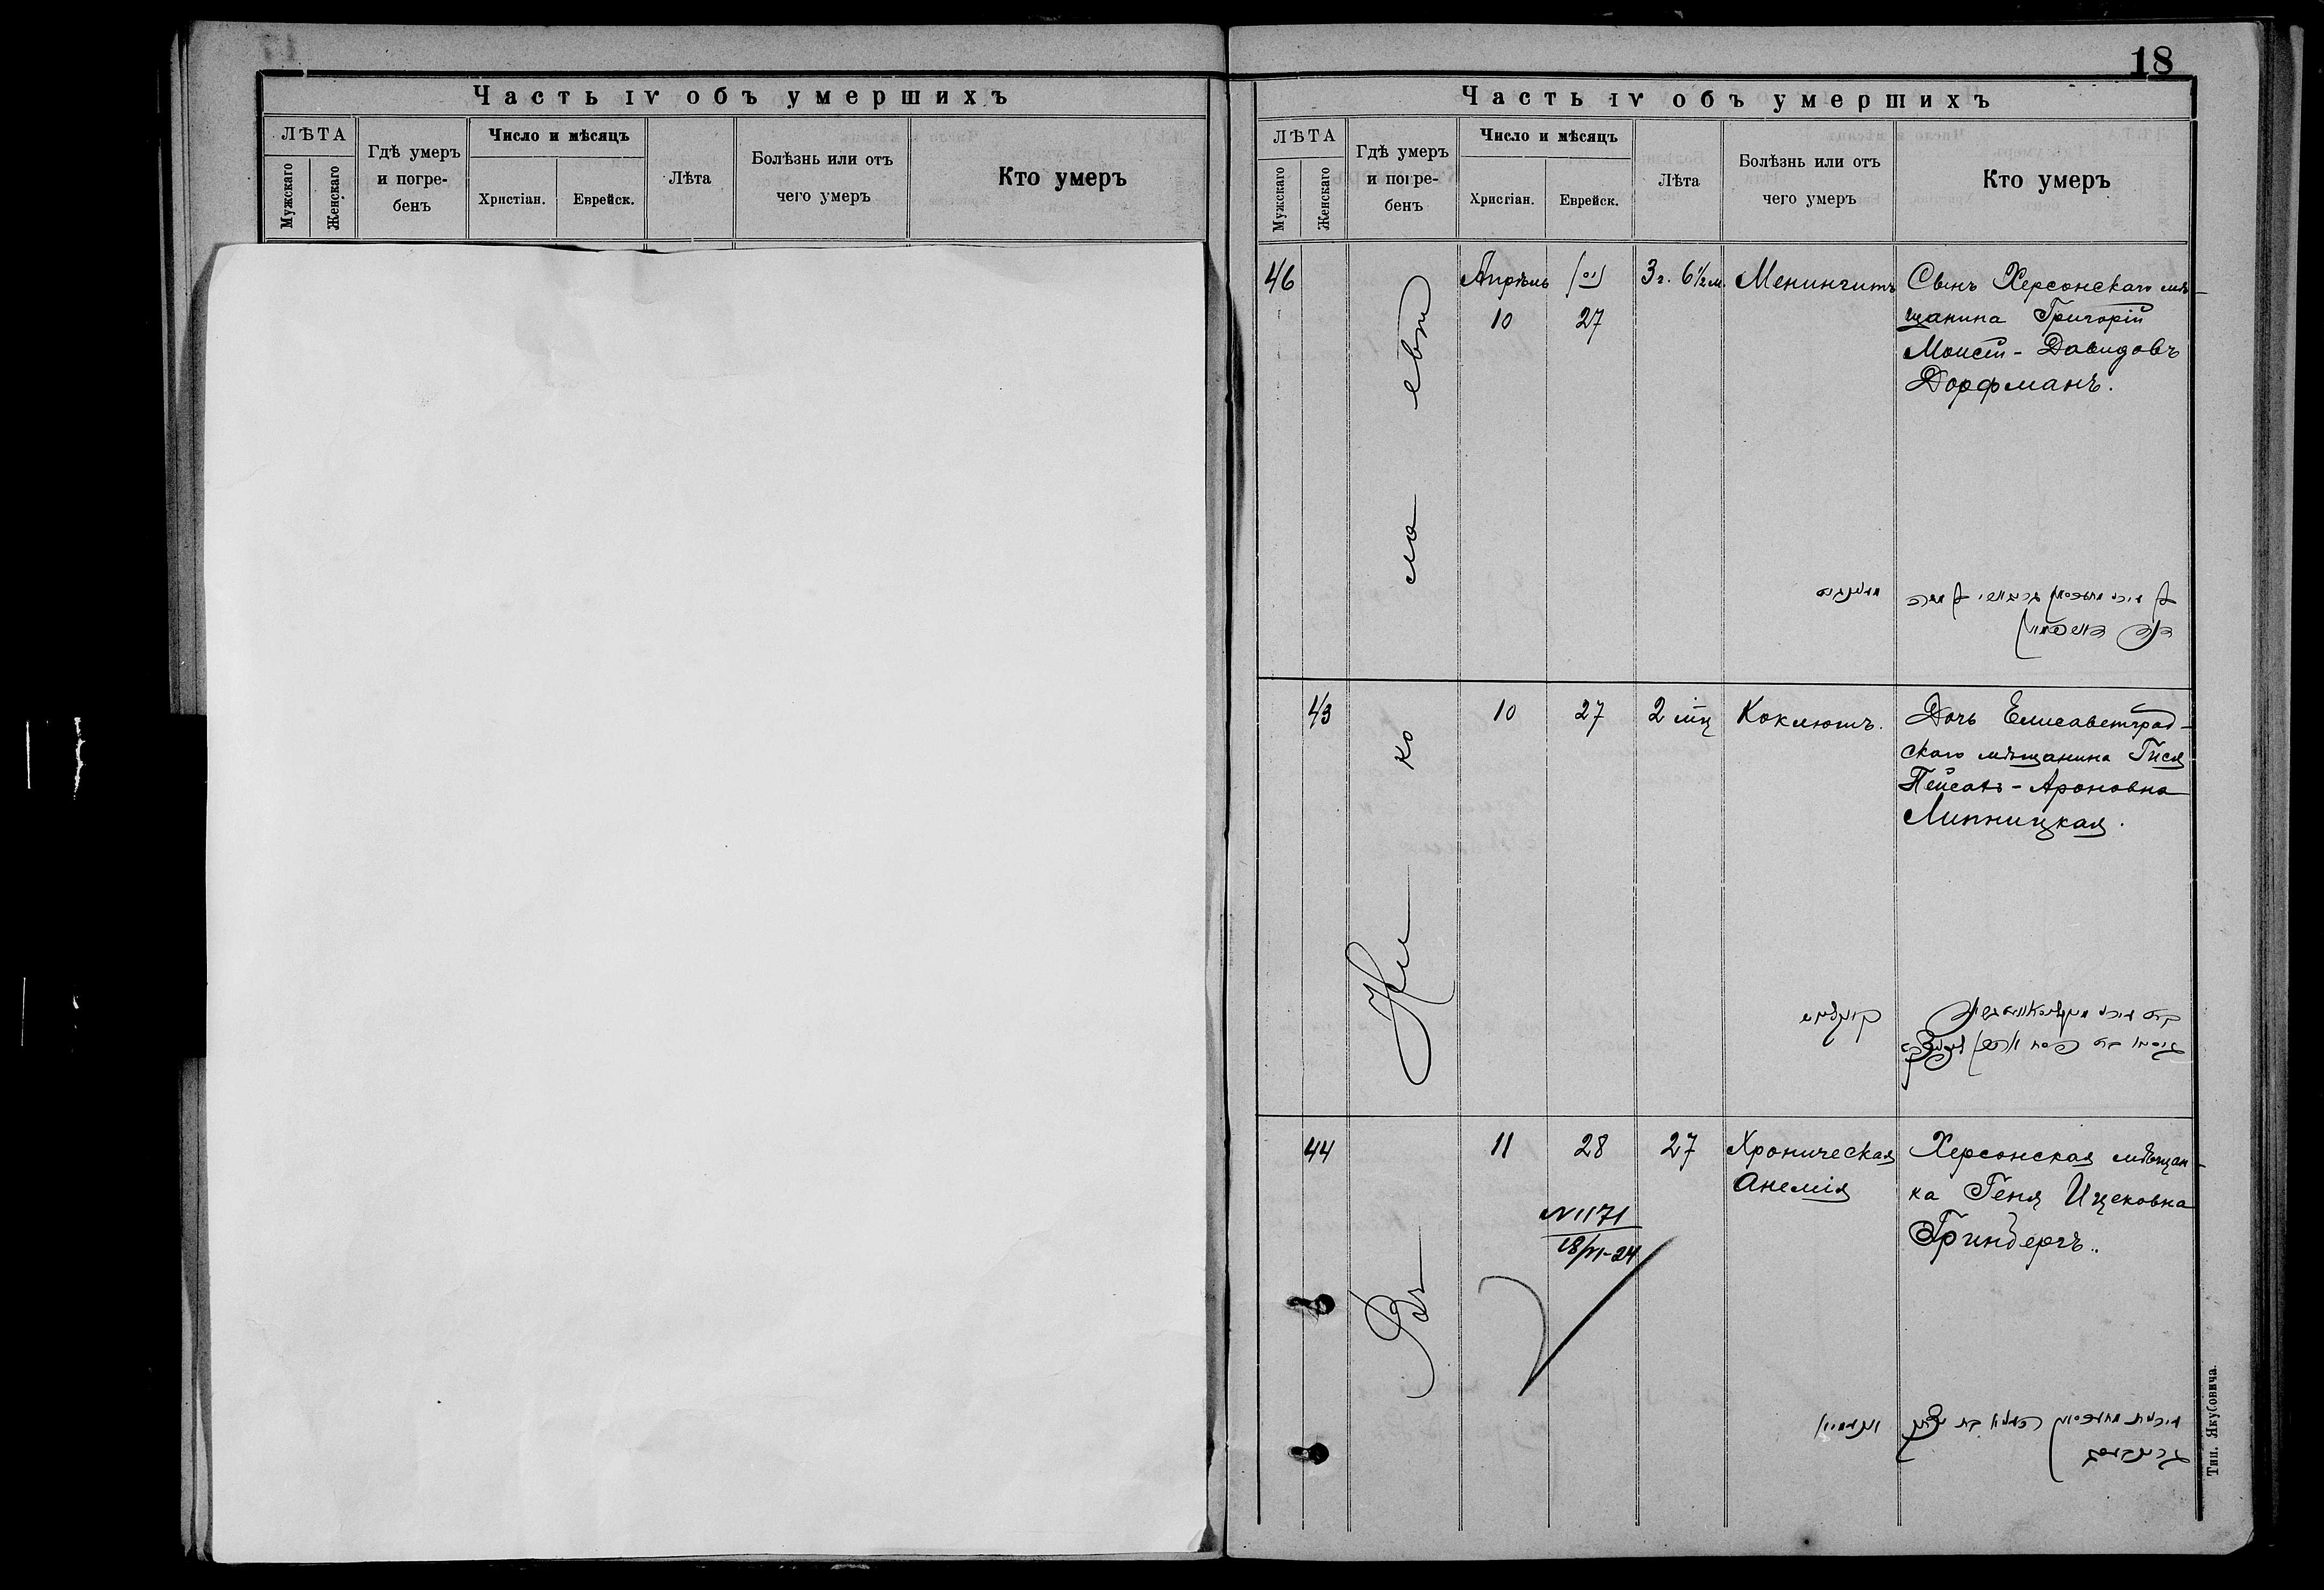 18
Часть IV объ умершихъ
ЛѢТА
Мужскаго
Женскаго
Гдѣ умеръ
и погре-
бенъ
Число и мѣсяцъ
Христіан.
Еврейск.
Лѣта
Болѣзнь или отъ
чего умеръ
Кто умеръ
Часть IV объ умершихъ
ЛѢТА
Мужскаго
Женскаго
Гдѣ умеръ
и погре-
бенъ
Число и мѣсяцъ
Христіан.
Еврейск.
Лѣта
Болѣзнь или отъ
чего умеръ
Кто умеръ
Въ Ни ко ла евѣ
46
Апрѣль
10
27
3 г. 6 1/2 м.
Менингитъ
Сынъ Херсонскаго мѣ-
щанина Григорій
Моисей-Давидовъ
Дорфманъ.
43
10
27
2 мц
Коклюшъ.
Дочь Елисаветград-
скаго мѣщанина Гися
Пейсахъ-Ароновна
Липницкая.
44
11
28
27
Хроническая
Анемія
Херсонская мѣщан-
ка Геня Ицековна
Гринбергъ.
N 1171
18/VI-24
Тип. Якубовича